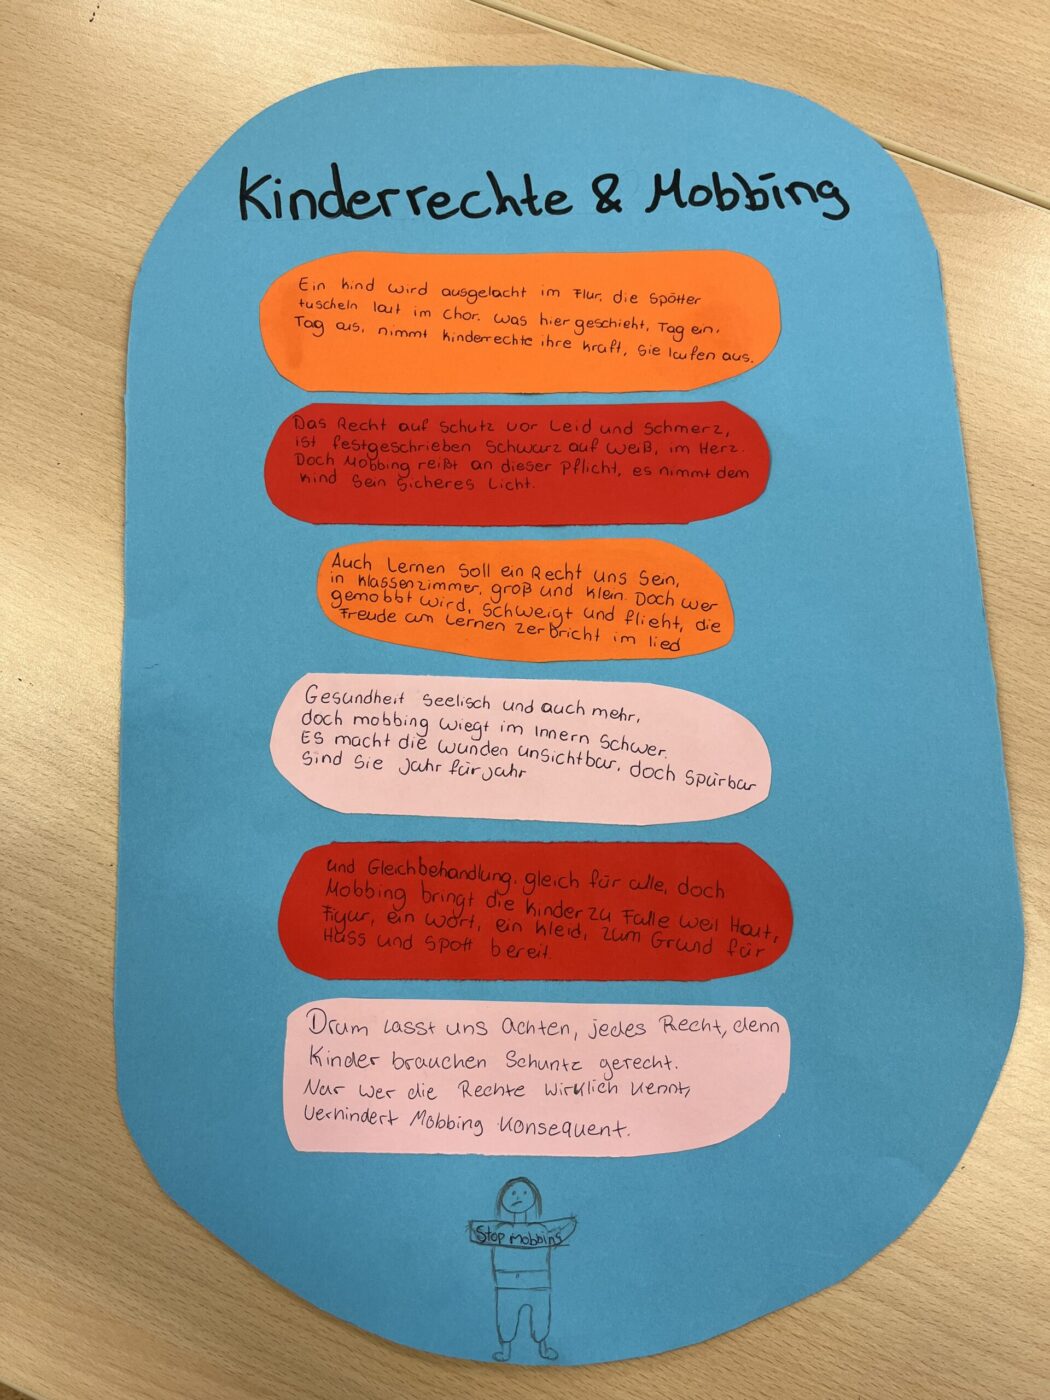 Kinderrechte & Mobbing
Ein Kind wird ausgelacht im Flur, die Spötter
tuscheln laut im Chor. was hier geschieht, Tag ein,
Tag aus, nimmt Kinderrechte ihre Kraft, Sie laufen aus.
Das Recht auf Schutz vor Leid und Schmerz,
ist festgeschrieben Schwarz auf weiß, im Herz.
Doch Mobbing reißt an dieser Pflicht, es nimmt dem
Kind Sein Sicheres Licht.
Auch Lernen Soll ein Recht uns Sein,
in Klassenzimmer, groß und Klein. Doch wer
gemobbt wird, Schweigt und flieht, die
Freude am Lernen zerbricht im lied
Gesundheit Seelisch und auch mehr,
doch mobbing wiegt im Innern Schwer.
Es macht die wunden unsichtbar, doch Spürbar
Sind Sie Jahr für Jahr
und Gleichbehandlung, gleich für alle, doch
Mobbing bringt die Kinder zu Falle weil Haut,
Figur, ein Wort, ein Kleid, zum Grund für
Hass und Spott bereit.
Drum Lasst uns Achten, jedes Recht, denn
Kinder brauchen Schuntz gerecht.
Nur wer die Rechte wirklich kennt,
Verhindert Mobbing Konsequent.
Stop Mobbing